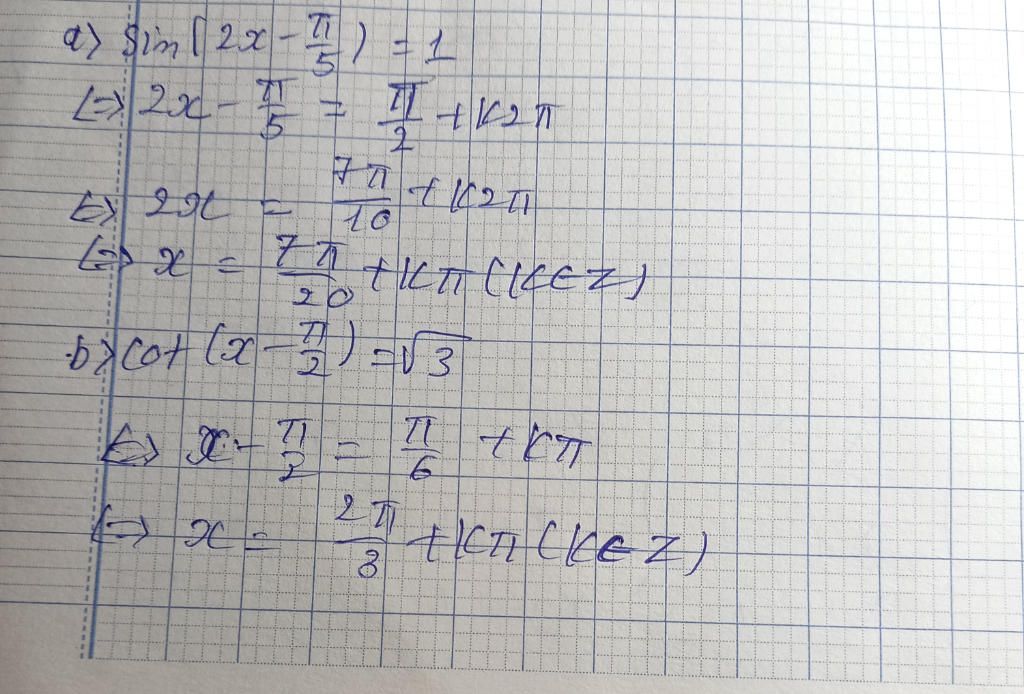 a) Sin( 2x - π/5 ) = 1
<=> 2x - π/5 = π/2 + K2π
<=> 2x = 7π/10 + K2π
<=> x = 7π/20 + Kπ (K ∈ Z)
b) Cot (x - π/2) = √3
<=> x - π/2 = π/6 + Kπ
<=> x = 2π/3 + Kπ (K ∈ Z)